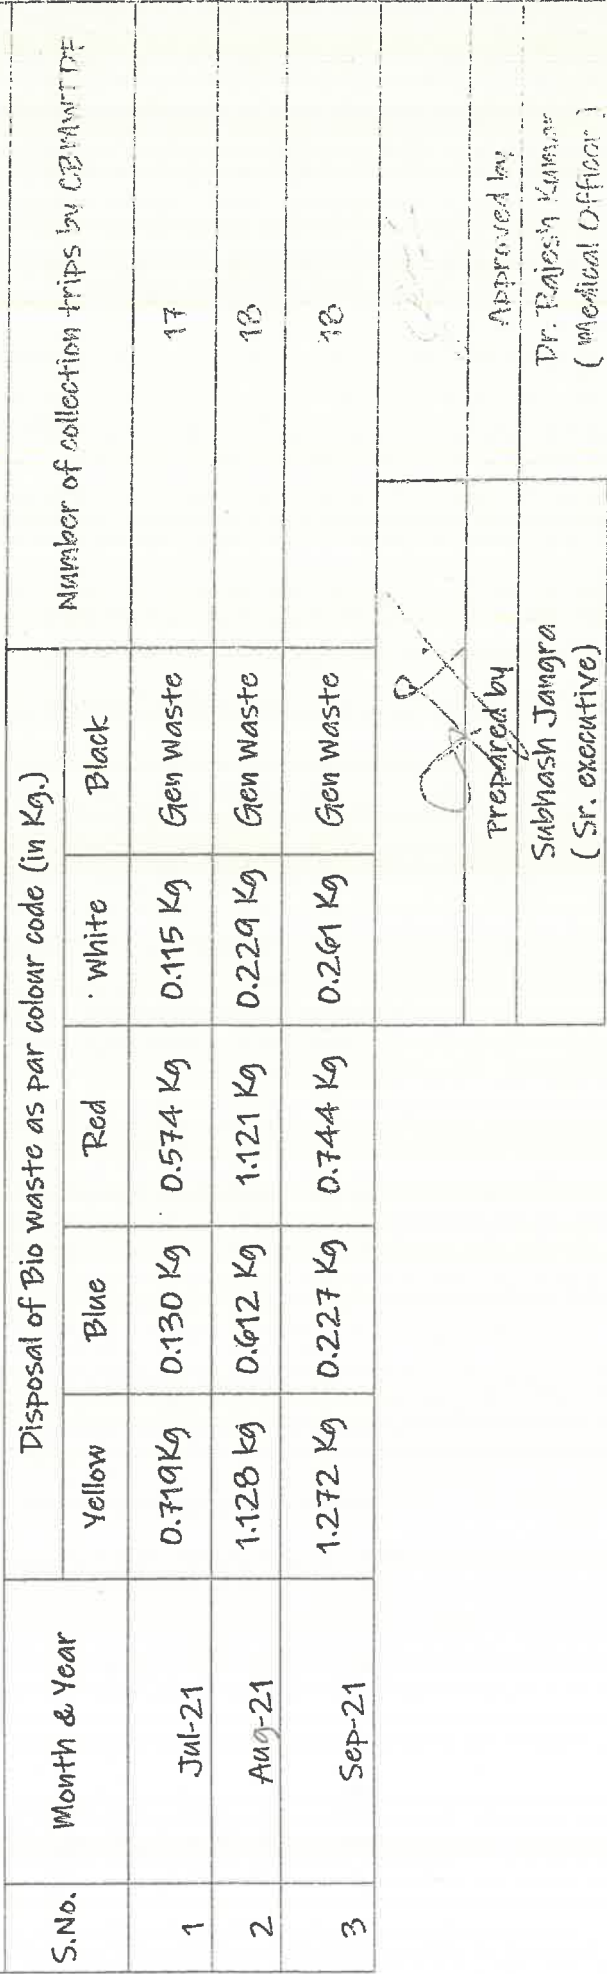 S.No. Month & Year Disposal of Bio waste as par colour code (in Kg.) Number of collection trips by CBMWTDF
Yellow Blue Red White Black
1 Jul-21 0.719Kg 0.130 Kg 0.574 Kg 0.115 Kg Gen Waste 17
2 Aug-21 1.128 kg 0.612 Kg 1.121 Kg 0.229 Kg Gen Waste 18
3 Sep-21 1.272 Kg 0.227 Kg 0.744 Kg 0.261 Kg Gen Waste 18
Prepared by Approved by
Subhash Jangra Dr. Rajesh Kumar
(Sr. executive) (Medical Officer)